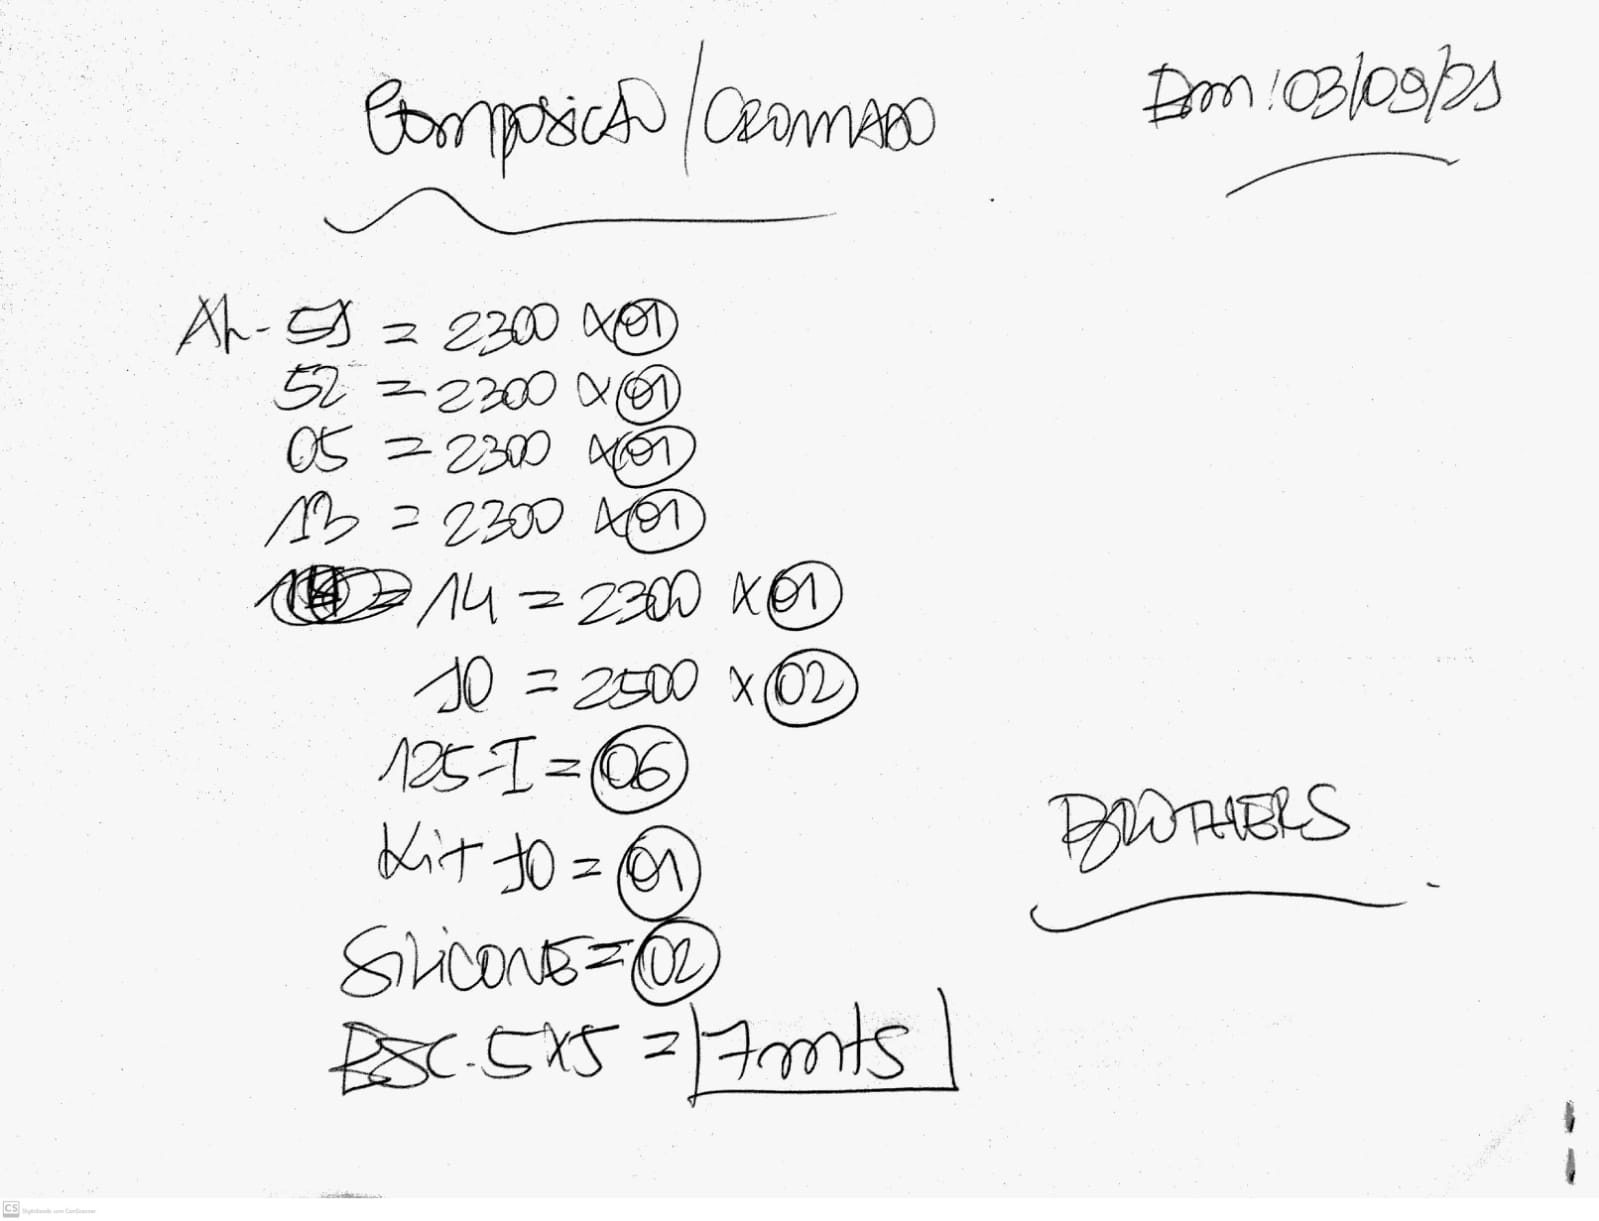 Composicão/CROMADO
Em: 03/09/21
AL- 51 = 2300 x 01
52 = 2300 x 01
05 = 2300 x 01
13 = 2300 x 01
14 = 2300 x 01
10 = 2500 x 02
125-I = 06
Kit 10 = 01
SILICONE = 02
ESC. 5x5 = 7mts
BROTHERS
CS Digitalizado com CamScanner